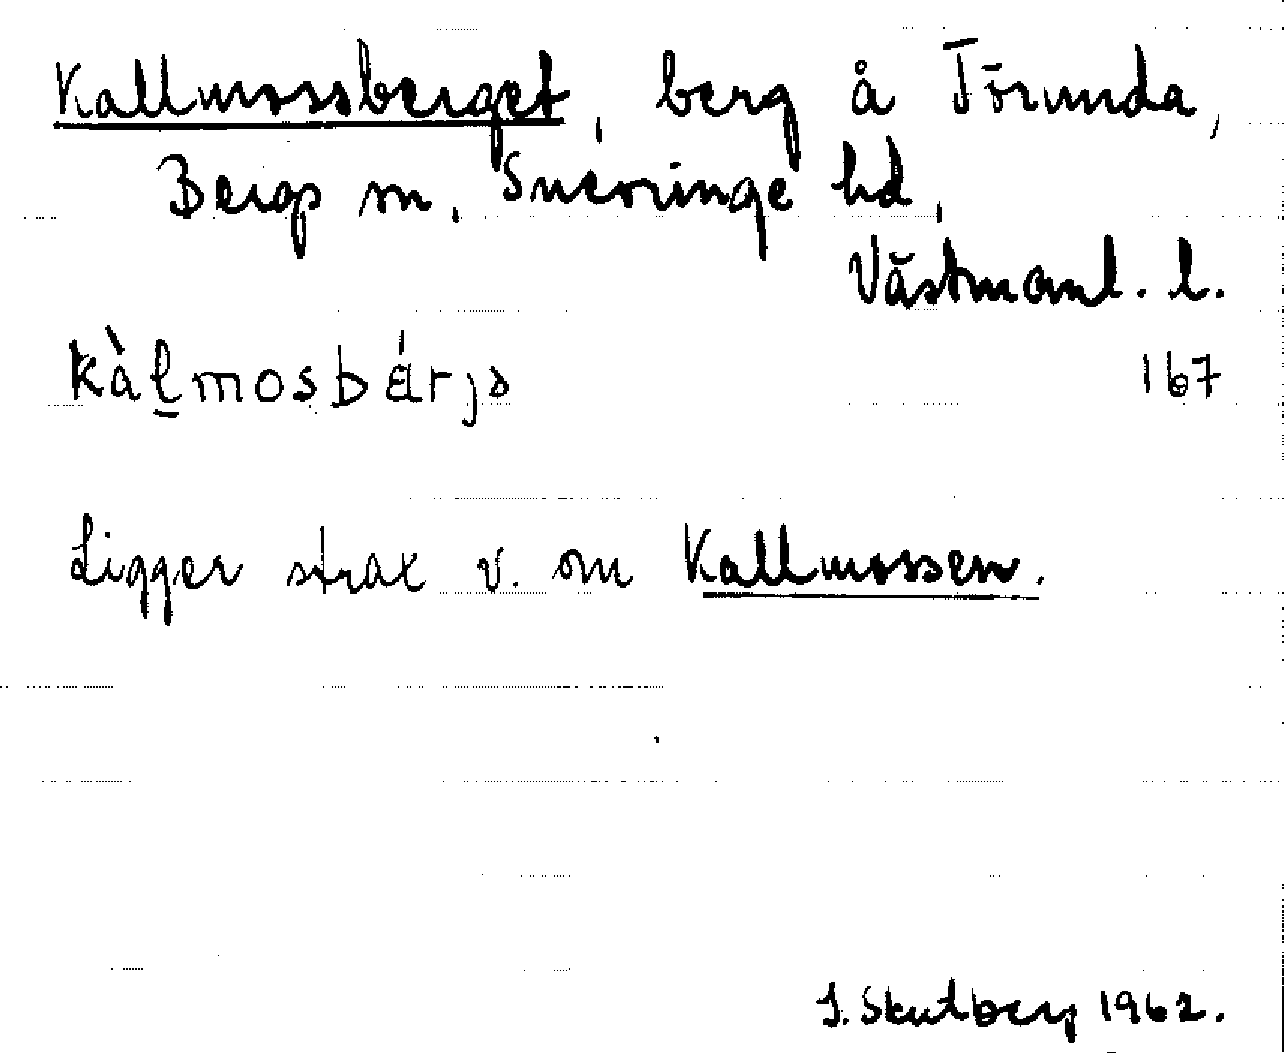 Kallmossberget, berg å Törunda,
Bergs sn, Snevringe hd,
Västmanl. l.
kàl̲mosbárjə 167
Ligger strax v. om Kallmossen.
J. Skutberg 1962.